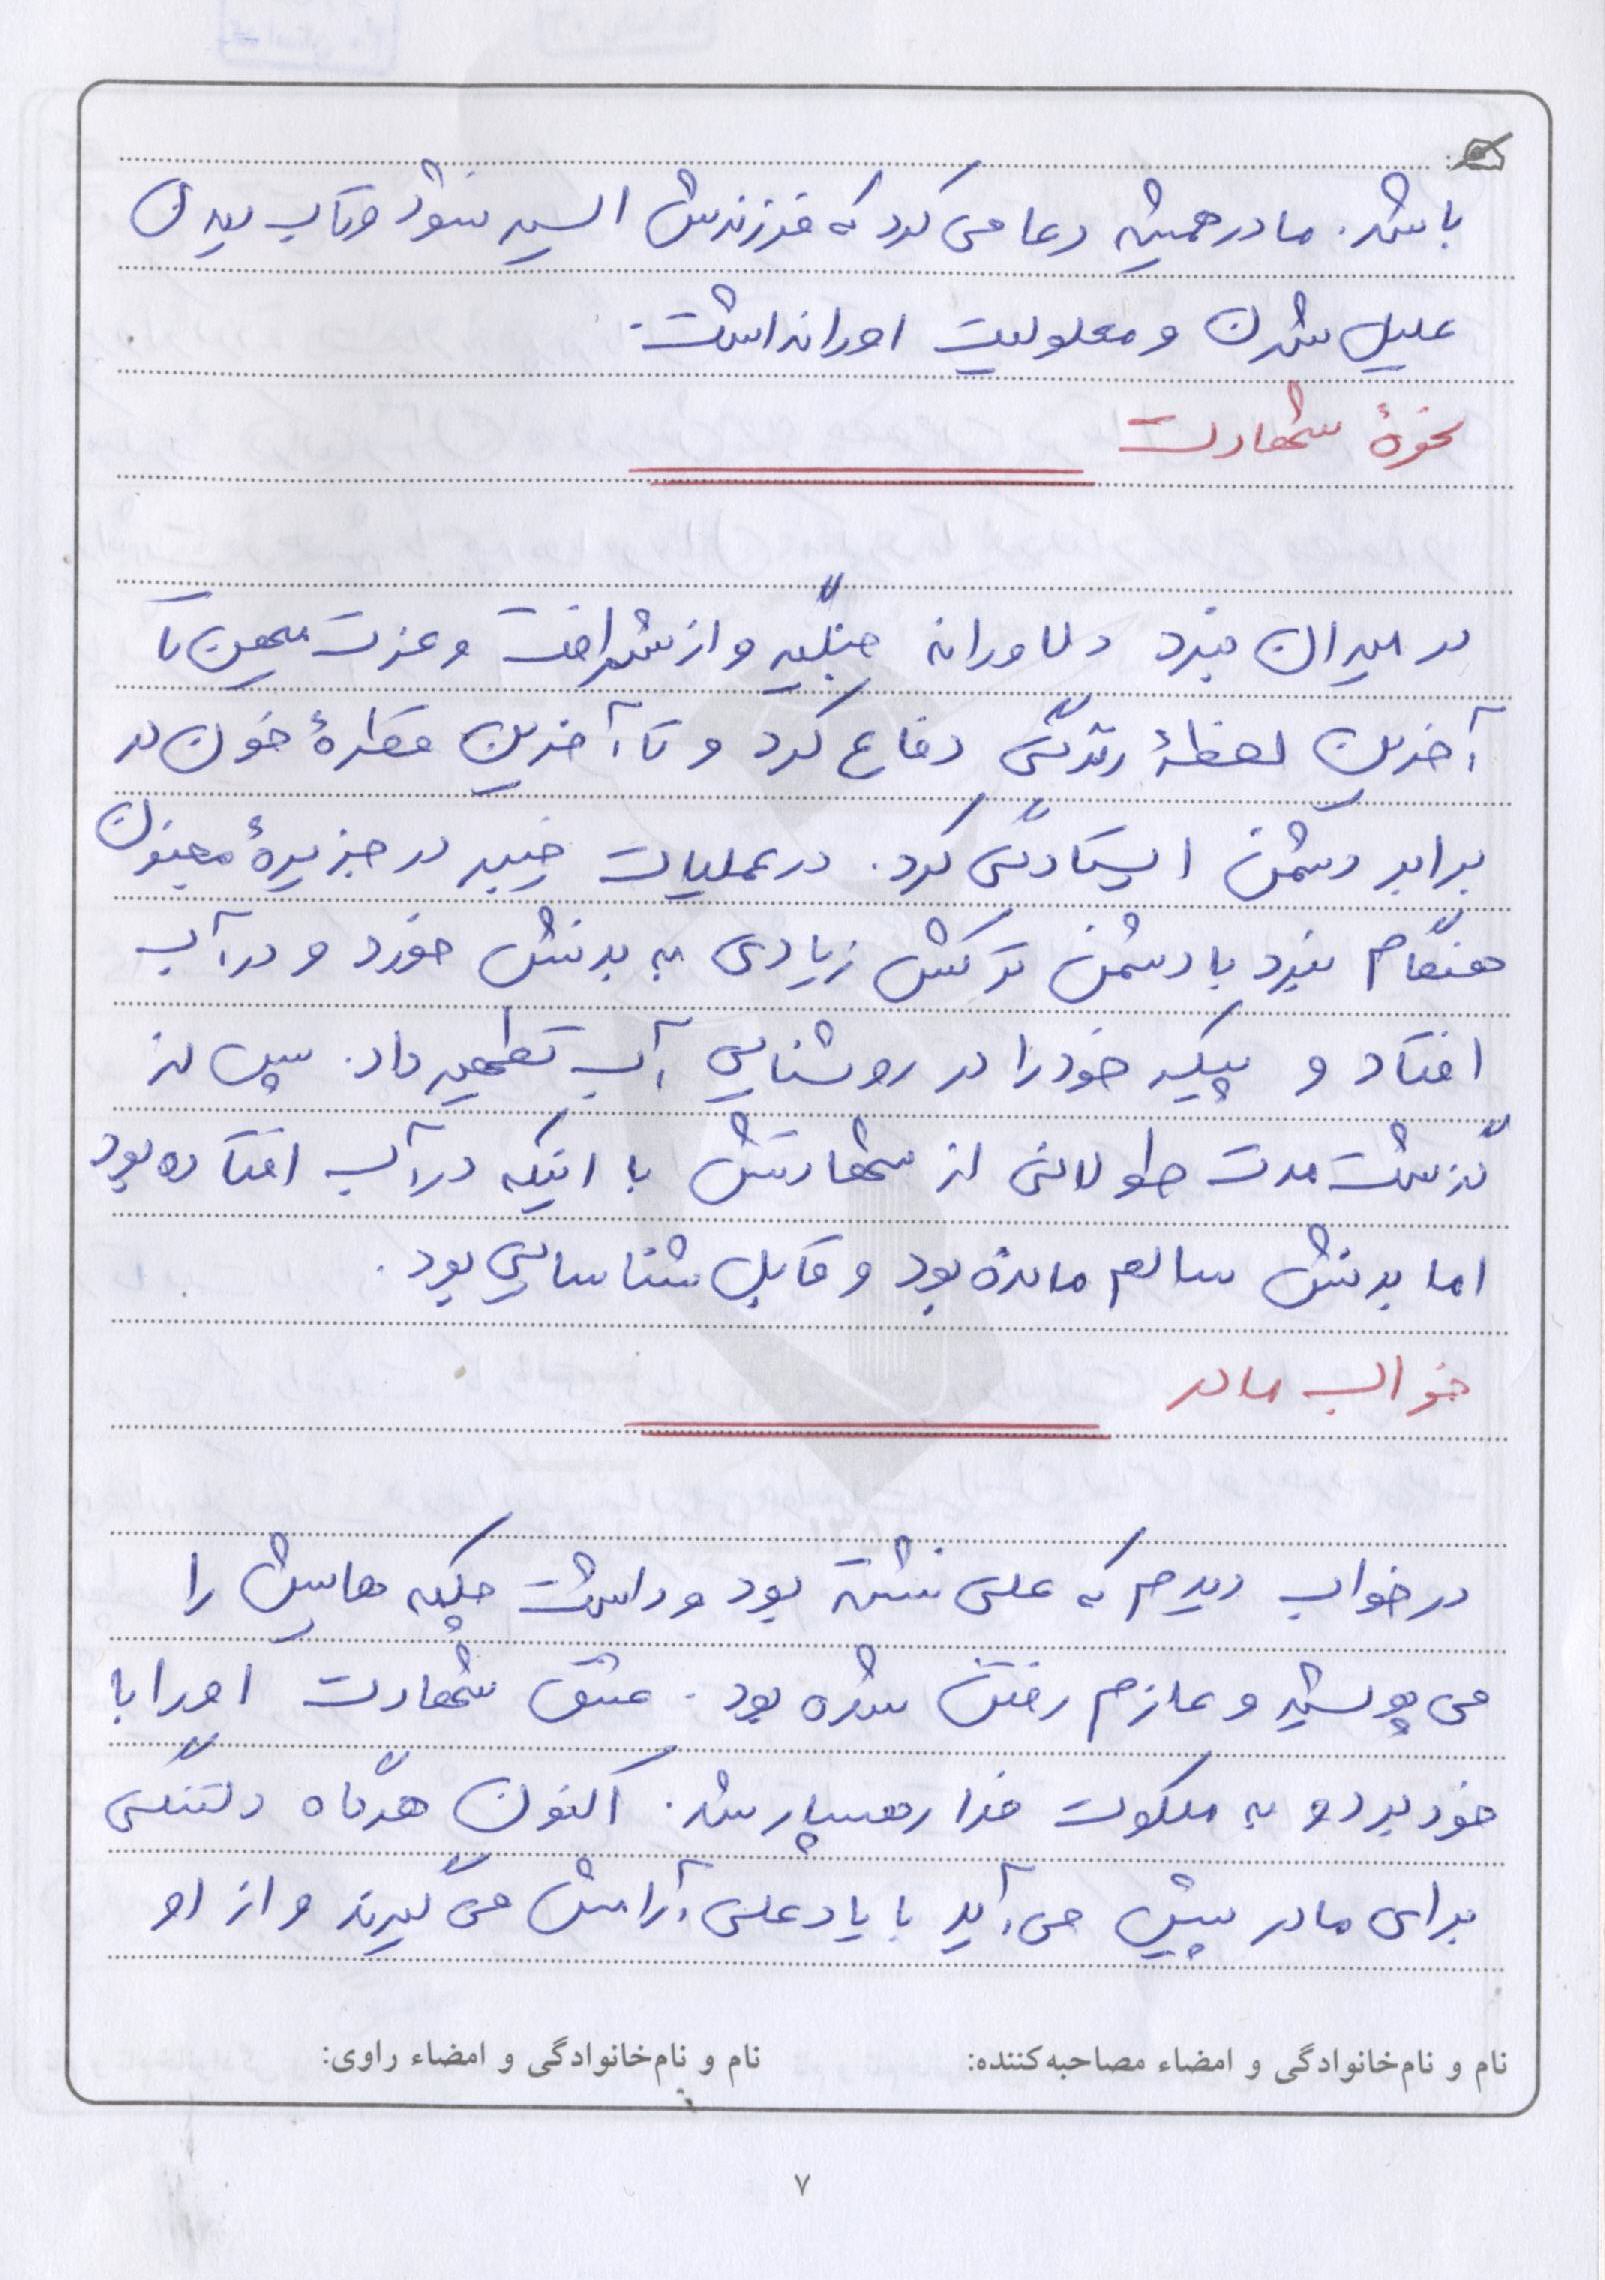 باشد. مادر همیشه دعا می کرد که فرزندش اسیر نشود و تاب دیدن
علیل شدن و معلولیت او را نداشت.
نحوهٔ شهادت
در میدان نبرد دلاورانه جنگید و از شرافت و عزت میهن تا
آخرین لحظهٔ زندگی دفاع کرد و تا آخرین قطرهٔ خون در
برابر دشمن ایستادگی کرد. در عملیات خیبر در جزیرهٔ مجنون
هنگام نبرد با دشمن ترکش زیادی به بدنش خورد و در آب
افتاد و پیکر خود را در روشنایی آب تطهیر داد. پس از
گذشت مدت طولانی از شهادتش با اینکه در آب افتاده بود
اما بدنش سالم مانده بود و قابل شناسایی بود.
خواب مادر
در خواب دیدم که علی نشسته بود و داشت چکمه هایش را
می پوشید و عازم رفتن شده بود. عشق شهادت او را با
خود برد و به ملکوت خدا رهسپار شد. اکنون هرگاه دلتنگی
برای مادر پیش می آید با یاد علی آرامش می گیرند و از او
نام و نام‌خانوادگی و امضاء مصاحبه‌کننده: نام و نام‌خانوادگی و امضاء راوی:
۷